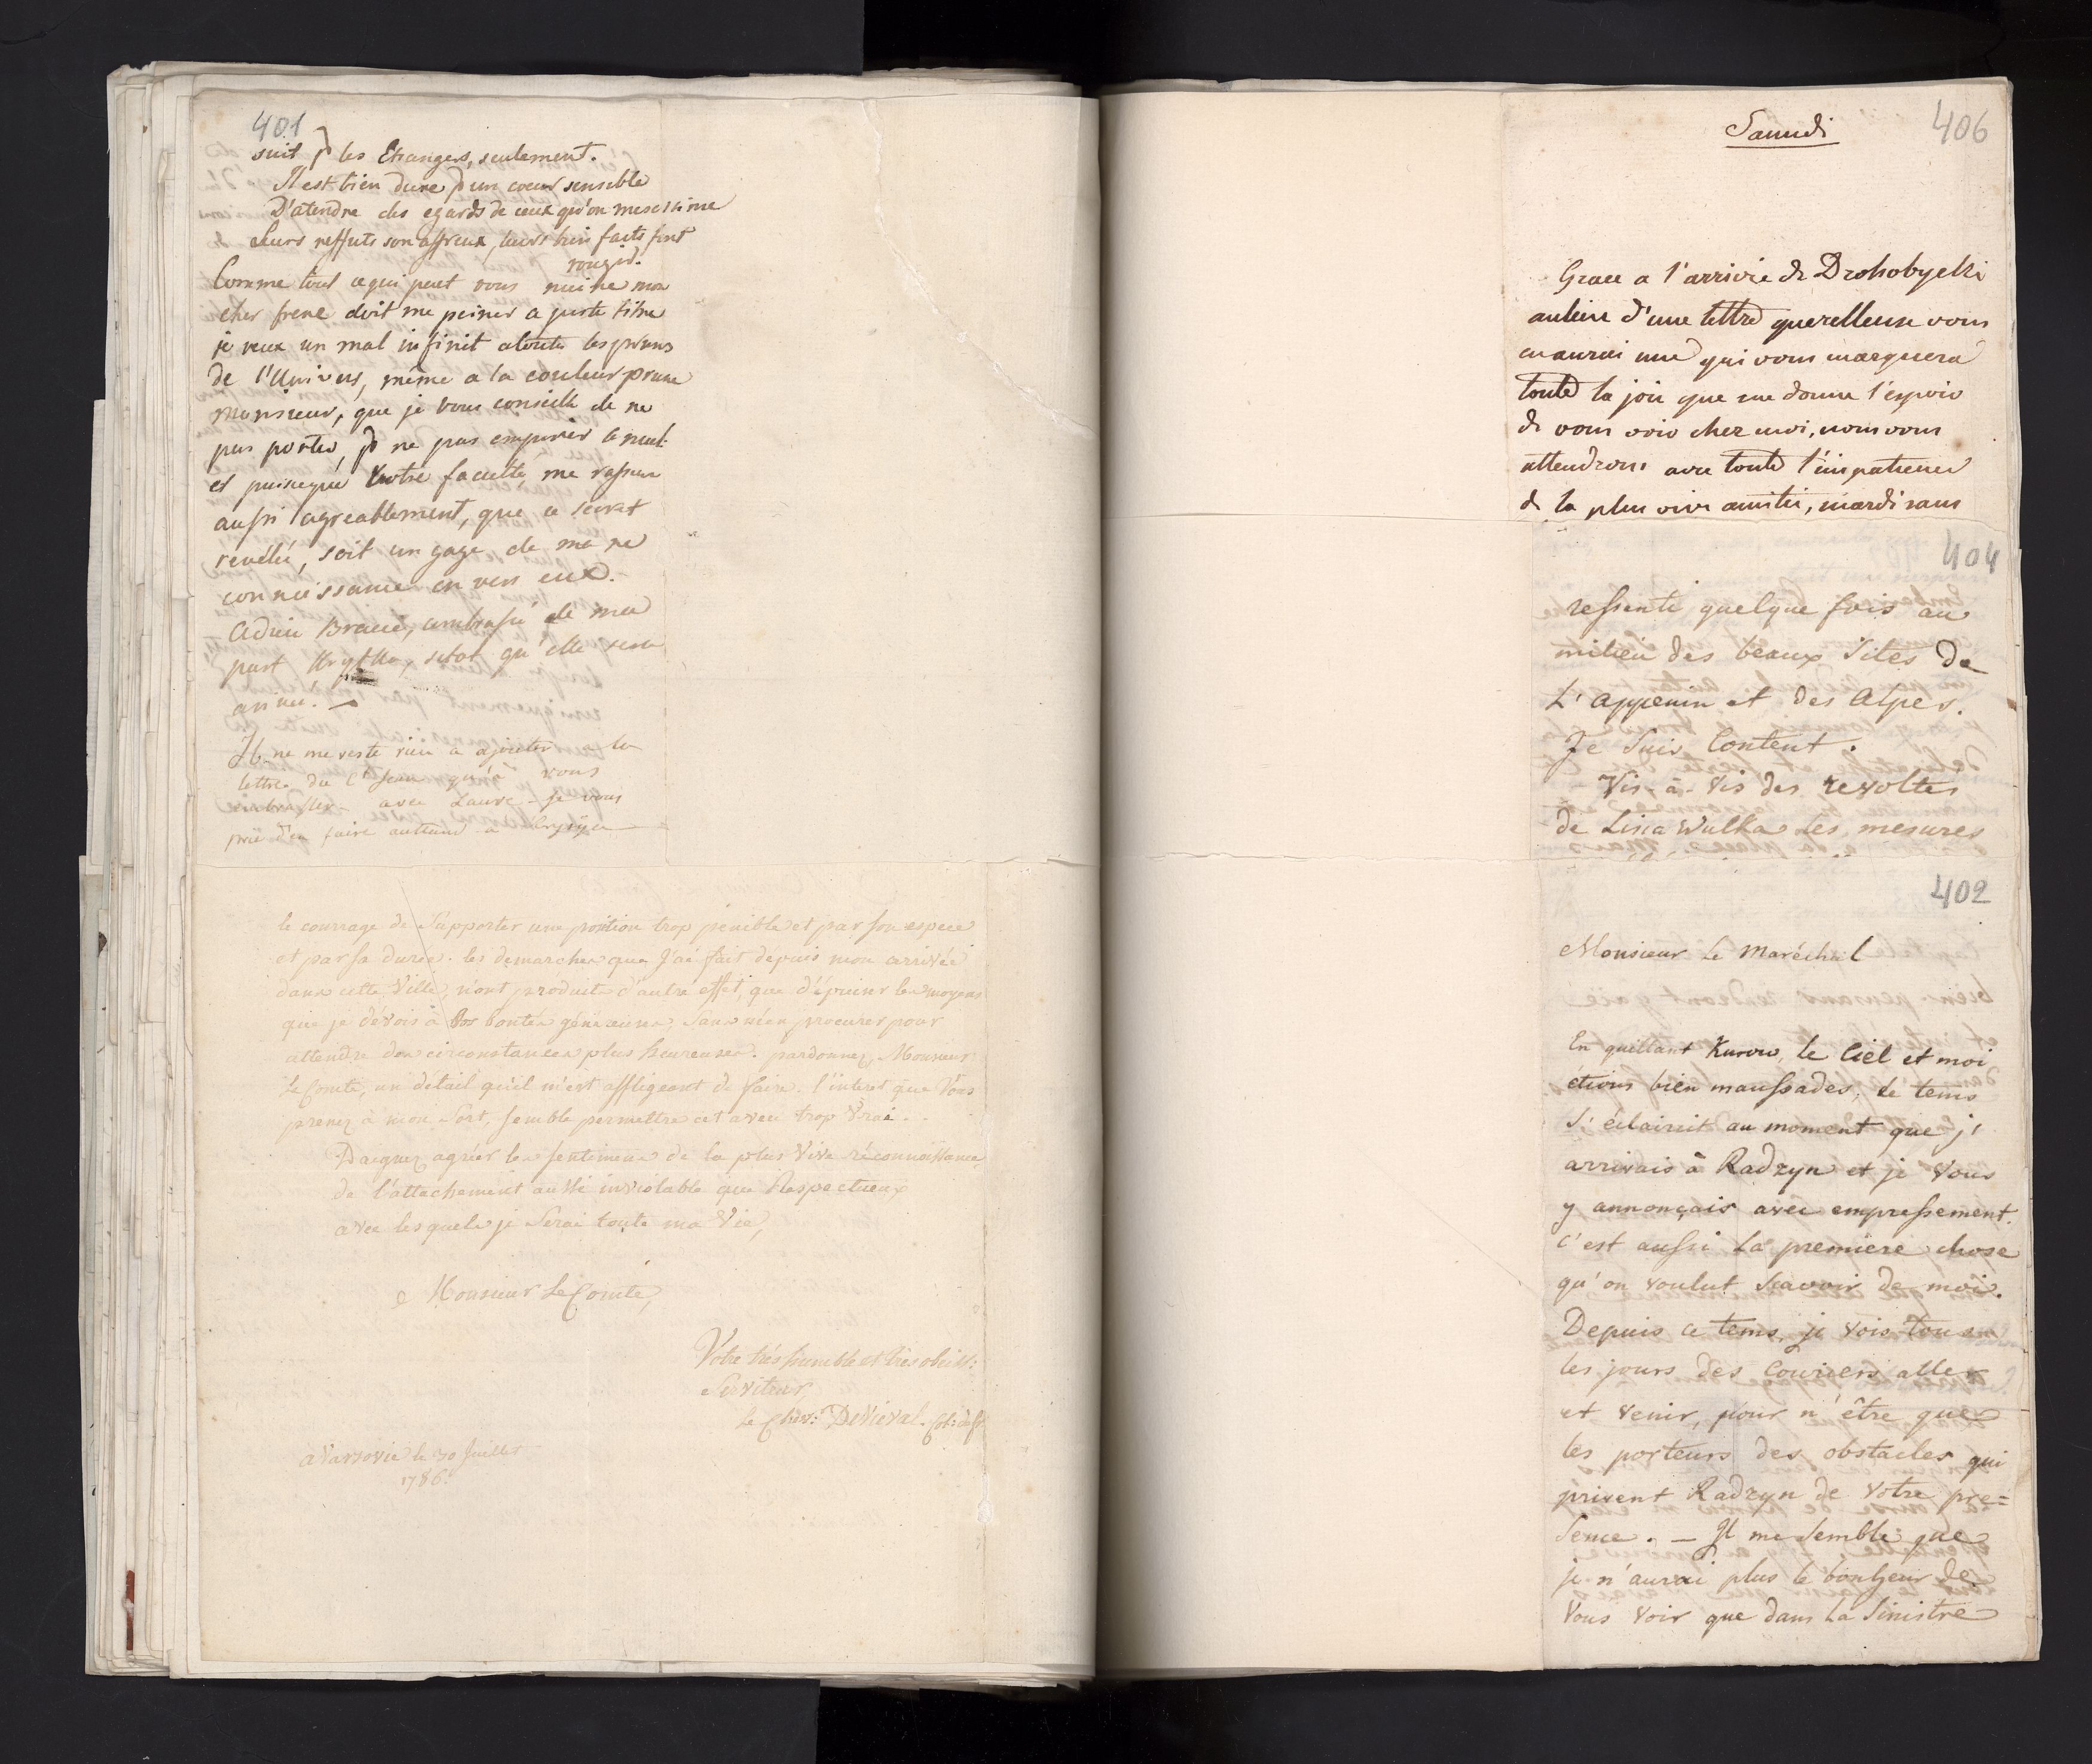 401
suit p les Etrangers, seulement.
Il est bien dure p un coeur sensible
D'atendre des egards de ceux qu'on mesestime
Leurs reffuts son affreux, leurs bien faits font
rougir.
Comme tout ce qui peut vous nuire mon
cher frere doit me peiner a juste titre
je veux un mal infinit a toutes les prunes
de l'Univers, même a la couleur prune
Monsieur, que je vous conseille de ne
pas porter, p ne pas empirer le mal.
et puisque votre faculté, me rassure
aussi agreablement, que ce secret
revélé, soit un gage de ma re
connaissance en vers eux.
Adieu Bracie, embrassé de ma
part Krytka, sitot qu'elle sera
arrivé.
Il ne me reste rien a ajouter a la
lettre du Cte Jean qu'à vous
embrasser avec Laure - je vous
prie d'en faire autant a
le courrage de Supporter une position trop penible et par son espece
et par sa durée. les demarches que J'ai fait depuis mon arrivée
dans cette Ville, n'ont produit d'autre effet, que d'épuiser les moyens
que je devois à Vos bontés généreuses, Sans m'en procurer pour
attendre des circonstances plus heureuses. pardonnez, Monsieur
Le Comte, un detail qu'il m'est affligeant de faire. l'interet que Vous
prenez à mon Sort, Semble permettre cet aveu trop Vrai.
Daignez agréer les sentimens de la plus Vive réconnoissance,
de l'attachement aussi inviolable que Respectueux
avec lesquels je Serai toute ma Vie,
Monsieur Le Comte,
Votre très humble et très obéiss:
Serviteur
le Chev: DeViéval.
a Varsovie le 30 Juillet
1786.
Samedi
406
Grace a l'arrivée de Drohobycki
aulieu d'une lettre querelleuse vous
en aurai une qui vous marquera
toute la joie que me donne l'espoir
de vous voir chez moi, nous vous
attendrons avec toute l'impatience
de la plus vive amitié, mardi sans
404
ressenti quelque fois au
milieu des beaux Sites de
L'Appenin et des Alpes.
Je Suis Content.
Vis-à-Vis des revoltés
de Lisia Wulka les mesures
402
Monsieur Le Maréchal
En quittant Kurow, le Ciel et moi
étions bien maussades, le tems
S'éclaircit au moment que j'
arrivais à Radzyn et je Vous
y annonçais avec empressement.
C'est aussi la premiere chose
qu'on voulut Scavoir de moi.
Depuis ce tems, je vois tous
les jours des Couriers aller
et venir, pour n'être que
les porteurs des obstacles qui
privent Radzyn de Votre pre=
Sence. - Il me Semble que
je n'aurai plus le bonheur de
Vous Voir que dans La Sinistre